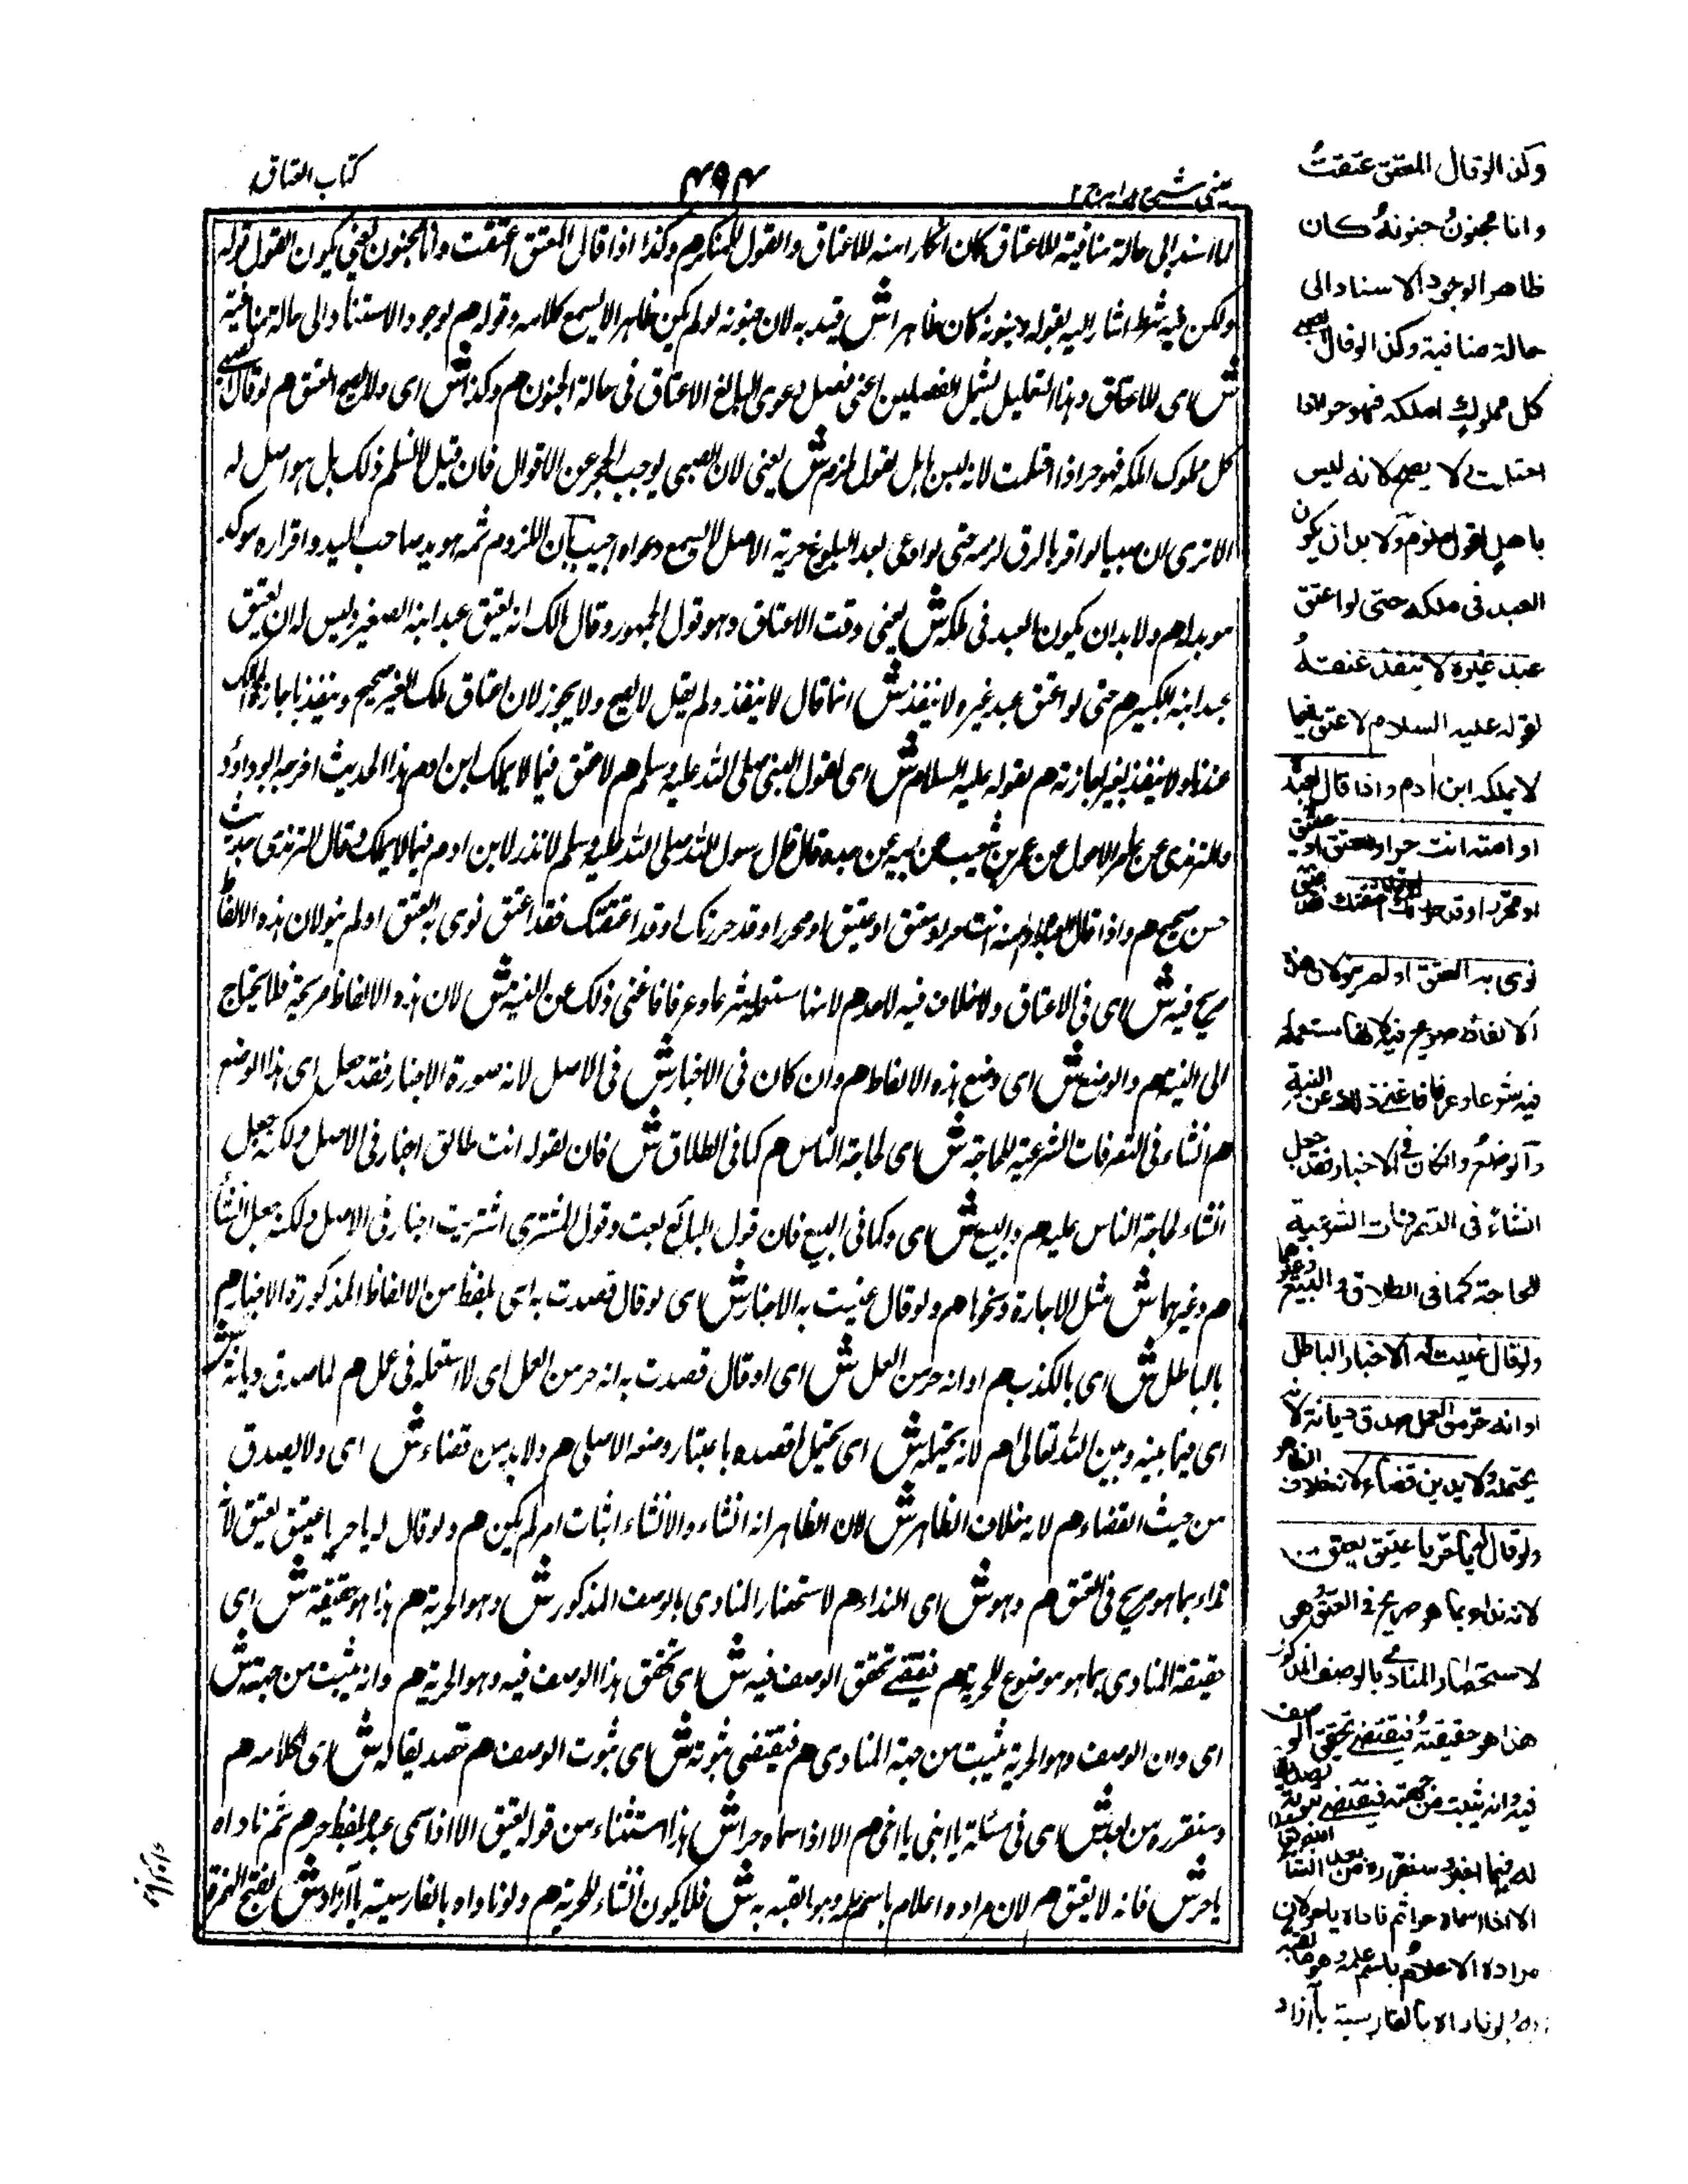 عینی شرح هدایه ج ۲
۴۹۴
کتاب العتاق
لما اسند الی حالة منافیة للاعتاق کان انکارا منه للاعتاق والقول للمنکر هم وکذا اذا قال المعتق اعتقت وانا مجنون یعنی یکون القول قوله
ولکن فیه شرط اشار الیه بقوله وجنونه کان ظاهرا ش قید به لان جنونه لو لم یکن ظاهرا لا یسمع کلامه وقوله هم لوجود الاستناد الی حالة منافیة
ش ای للاعتاق وهذا التعلیل یشمل الفصلین اعنی فصل دعوی البالغ الاعتاق فی حالة الجنون هم وکذا ش ای ولا یصح العتق هم لو قال الصبی
کل مملوک املکه فهو حر اذا احتلمت لانه لیس باهل لقول ملزم ش یعنی لان الصبی یوجب الحجر عن الاقوال فان قیل لا نسلم ذلک بل هو اهل له
الا تری ان صبیا لو اقر بالرق لزمه حتی لو ادعی بعد البلوغ حریة الاصل لا یسمع دعواه اجیب بان اللزوم ثمه هو ید صاحب الید واقراره موکد
موبدا هم ولا بد ان یکون العبد فی ملکه ش یعنی وقت الاعتاق وهو قول الجمهور وقال مالک انه یعتق عبد ابنه الصغیر ولیس له ان یعتق
عبد ابنه الکبیر هم حتی لو اعتق عبد غیره لا ینفذ ش انما قال لا ینفذ ولم یقل لا یصح ولا یجوز لان اعتاق ملک الغیر صحیح وینفذ باجازة المالک
عندنا ولا ینفذ بغیر اجازته هم لقوله علیه السلام ش ای لقول النبی صلی الله علیه وسلم هم لا عتق فیما لا یملک ابن ادم هذا الحدیث اخرجه ابو داؤد
والترمذی عن عامر الاحول عن عمرو بن شعیب عن ابیه عن جده قال قال رسول الله صلی الله علیه وسلم لا نذر لابن ادم فیما لا یملک وقال الترمذی حدیث
حسن صحیح هم واذا قال لعبده او امته انت حر او معتق او عتیق او محرر او قد حررتک او قد اعتقتک فقد اعتق نوی به العتق او لم ینو لان هذه الالفاظ
صریح فیه ش ای فی الاعتاق ولا خلاف فیه لاحد هم لانها مستعملة فیه شرعا وعرفا فاغنی ذلک عن النیة ش لان هذه الالفاظ صریحة فلا یحتاج
الی النیة هم والوضع ش ای وضع هذه الالفاظ هم وان کان فی الاخبار ش فی الاصل لانه صورة الاخبار فقد جعل ای هذا الوضع
هم انشاء فی التصرفات الشرعیة للحاجة ش ای لحاجة الناس هم کما فی الطلاق ش فان لقوله انت طالق اخبار فی الاصل ولکنه جعل
انشاء لحاجة الناس علیه هم والبیع ش ای وکما فی البیع فان قول البائع بعت وقول المشتری اشتریت اخبار فی الاصل ولکنه جعل انشأ
هم وغیرهما ش مثل الاجارة ونحوها هم ولو قال عنیت به الاخبار ش ای لو قال قصدت به ای بلفظ من الالفاظ المذکورة الاخبار هم
بالباطل ش ای بالکذب هم او انه حر من العمل ش ای او قال قصدت به انه حر من العمل ای لا استعمله فی عمل هم لما صدق دیانة ش
ای فیما بینه وبین الله تعالی هم لانه یحتمله ش ای یحتمل قصده باعتبار وضعه الاصلی هم ولا یدین قضاء ش ای ولا یصدق
من حیث القضاء هم لانه خلاف الظاهر ش لان الظاهر انه انشاء والانشاء اثبات امر لم یکن هم ولو قال له یا حر یا عتیق یعتق لانه
نداء بما هو صریح فی العتق هم وهو ش ای النداء هم لاستحضار المنادی بالوصف المذکور ش وهو الحریة هم هذا هو حقیقته ش ای
حقیقة المنادی بما هو موضوع للحریة هم فیقتضی تحقق الوصف فیه ش ای تحقق هذا الوصف فیه وهو الحریة هم وانه یثبت من جهته ش
ای وان الوصف وهو الحریة یثبت من جهة المنادی هم فیقتضی ثبوته ش ای ثبوت الوصف هم تصدیقا له ش ای لکلامه هم
وسنقرره من بعد ش ای فی مسئلة یا ابنی یا اخی هم الا اذا سماه حرا ش هذا استثناء من قوله یعتق الا اذا سمی عبده بلفظ حر هم ثم ناداه
یا حر ش فانه لا یعتق هم لان مراده اعلام باسم علمه وهو ما لقبه به ش فلا یکون انشاء للحریة هم ولو ناداه بالفارسیة یا آزاد ش بفتح الهمزة
وکذا لو قال المعتق عتقتُ
وانا مجنونٌ جنونهٗ کان
ظاهرا لوجود الاسناد الی
حالة منافیة وکذا لو قال الصبی
کل مملوکٍ املکه فهو حر اذا
احتلمت لا یصح لانه لیس
باهلٍ لقول ملزم ولا بد ان یکون
العبد فی ملکه حتی لو اعتق
عبد غیره لا ینفذ عتقهٗ
لقوله علیه السلام لا عتق فیما
لا یملکه ابن ادم واذا قال لعبده
او امته انت حر او معتق او عتیق
او محرر او قد حررتک او اعتقتک فقد عتق
نوی به العتق او لم ینو لان هذه
الالفاظ صریح فیه لانها مستعملة
فیه شرعا وعرفا فاغنی ذلک عن النیة
والوضعُ وانکان فی الاخبار فقد جعل
انشاءً فی التصرفات الشرعیة
للحاجة کما فی الطلاق والبیع وغیرهما
ولو قال عنیت به الاخبار الباطل
او انه حر من العمل صدق دیانة لانه
یحتمله ولا یدین قضاء لانه خلاف الظاهر
ولو قال لهٗ یا حر یا عتیق یعتق
لانه نداء بما هو صریح فی العتق وهی
لاستحضار المنادی بالوصف المذکور
هذا هو حقیقتهٗ فیقتضی تحقق الوصف
فیه وانه یثبت من جهته فیقتضی ثبوته تصدیقا
له فیما اخبر وسنقرره من بعد انشاء الله تعالی
الا اذا سماه حرا ثم ناداه یا حر لان
مراده الاعلام باسم علمه وهو ما لقبه
به ولو ناداه بالفارسیة یا آزاد